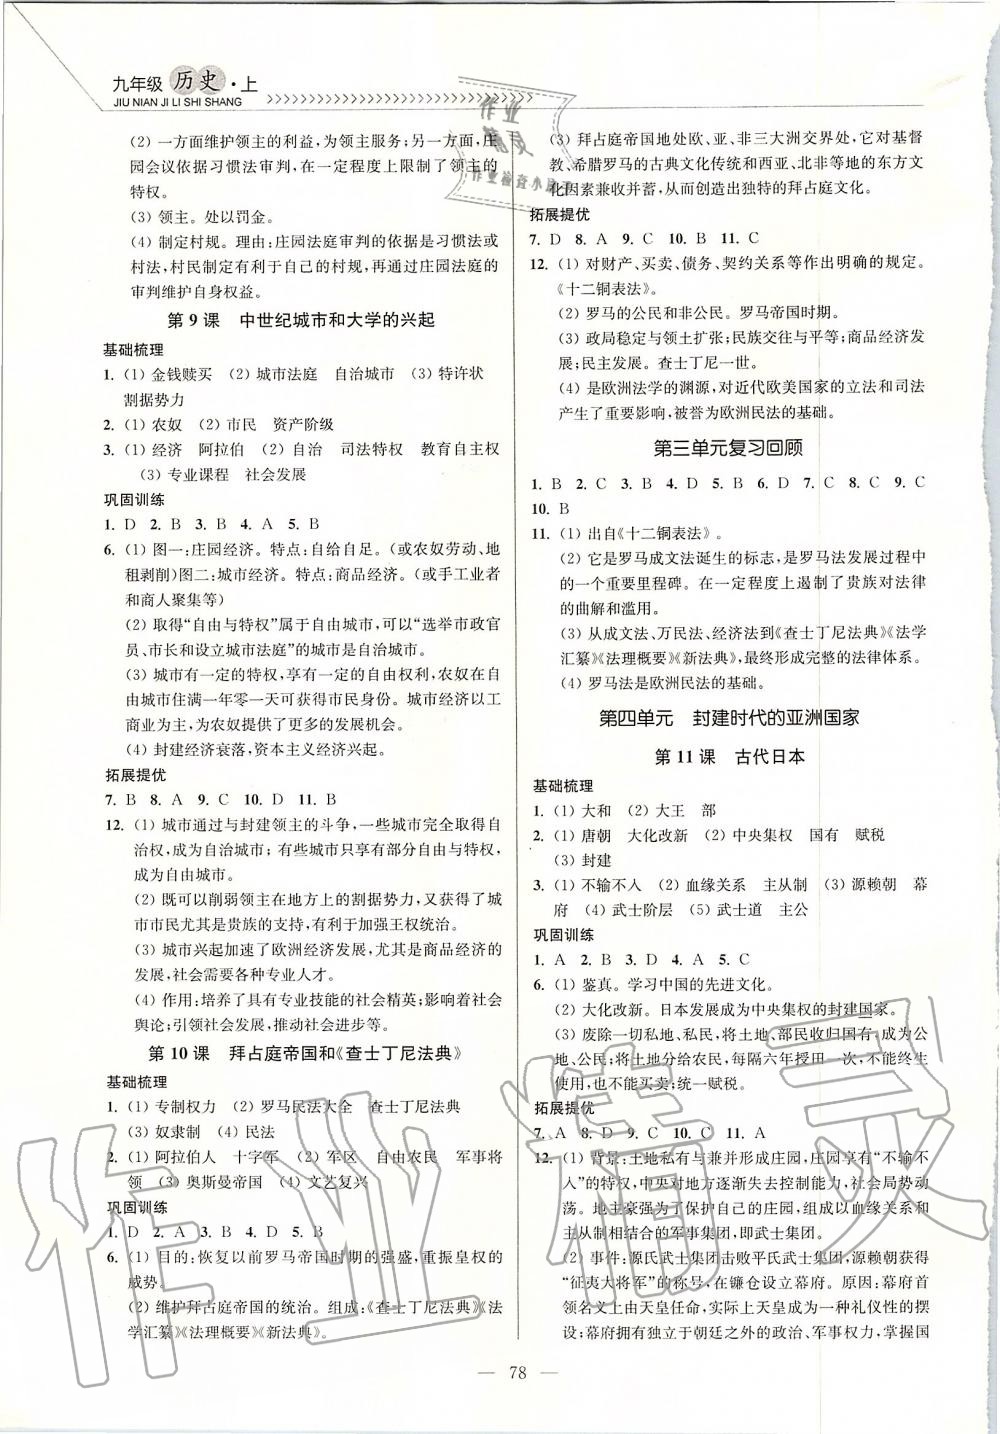 九年级 历史·上
JIU NIAN JI LI SHI SHANG
(2) 一方面维护领主的利益，为领主服务；另一方面，庄
园会议依据习惯法审判，在一定程度上限制了领主的
特权。
(3) 领主。处以罚金。
(4) 制定村规。理由：庄园法庭审判的依据是习惯法或
村法，村民制定有利于自己的村规，再通过庄园法庭的
审判维护自身权益。
第 9 课　中世纪城市和大学的兴起
基础梳理
1. (1) 金钱赎买　(2) 城市法庭　自治城市　(3) 特许状
割据势力
2. (1) 农奴　(2) 市民　资产阶级
3. (1) 经济　阿拉伯　(2) 自治　司法特权　教育自主权
(3) 专业课程　社会发展
巩固训练
1. D　2. B　3. B　4. A　5. B
6. (1) 图一：庄园经济。特点：自给自足。（或农奴劳动、地
租剥削）图二：城市经济。特点：商品经济。（或手工业者
和商人聚集等）
(2) 取得“自由与特权”属于自由城市，可以“选举市政官
员、市长和设立城市法庭”的城市是自治城市。
(3) 城市有一定的特权，享有一定的自由权利，农奴在自
由城市住满一年零一天可获得市民身份。城市经济以工
商业为主，为农奴提供了更多的发展机会。
(4) 封建经济衰落，资本主义经济兴起。
拓展提优
7. B　8. A　9. C　10. D　11. B
12. (1) 城市通过与封建领主的斗争，一些城市完全取得自
治权，成为自治城市；有些城市只享有部分自由与特权，
成为自由城市。
(2) 既可以削弱领主在地方上的割据势力，又获得了城
市市民尤其是贵族的支持，有利于加强王权统治。
(3) 城市兴起加速了欧洲经济发展，尤其是商品经济的
发展，社会需要各种专业人才。
(4) 作用：培养了具有专业技能的社会精英；影响着社会
舆论；引领社会发展，推动社会进步等。
第 10 课　拜占庭帝国和《查士丁尼法典》
基础梳理
1. (1) 专制权力　(2) 罗马民法大全　查士丁尼法典
(3) 奴隶制　(4) 民法
2. (1) 阿拉伯人　十字军　(2) 军区　自由农民　军事将
领　(3) 奥斯曼帝国　(4) 文艺复兴
巩固训练
1. D　2. A　3. B　4. D　5. B
6. (1) 目的：恢复以前罗马帝国时期的强盛，重振皇权的
威势。
(2) 维护拜占庭帝国的统治。组成：《查士丁尼法典》《法
学汇纂》《法理概要》《新法典》。
(3) 拜占庭帝国地处欧、亚、非三大洲交界处，它对基督
教、希腊罗马的古典文化传统和西亚、北非等地的东方文
化因素兼收并蓄，从而创造出独特的拜占庭文化。
拓展提优
7. D　8. A　9. C　10. B　11. C
12. (1) 对财产、买卖、债务、契约关系等作出明确的规定。
《十二铜表法》。
(2) 罗马的公民和非公民。罗马帝国时期。
(3) 政局稳定与领土扩张；民族交往与平等；商品经济发
展；民主发展。查士丁尼一世。
(4) 是欧洲法学的渊源，对近代欧美国家的立法和司法
产生了重要影响，被誉为欧洲民法的基础。
第三单元复习回顾
1. B　2. C　3. B　4. D　5. B　6. D　7. C　8. C　9. C
10. B
11. (1) 出自《十二铜表法》。
(2) 它是罗马成文法诞生的标志，是罗马法发展过程中
的一个重要里程碑。在一定程度上遏制了贵族对法律
的曲解和滥用。
(3) 从成文法、万民法、经济法到《查士丁尼法典》《法学
汇纂》《法理概要》《新法典》，最终形成完整的法律体系。
(4) 罗马法是欧洲民法的基础。
第四单元　封建时代的亚洲国家
第 11 课　古代日本
基础梳理
1. (1) 大和　(2) 大王　部
2. (1) 唐朝　大化改新　(2) 中央集权　国有　赋税
(3) 封建
3. (1) 不输不入　(2) 血缘关系　主从制　(3) 源赖朝　幕
府　(4) 武士阶层　(5) 武士道　主公
巩固训练
1. A　2. B　3. D　4. A　5. C
6. (1) 鉴真。学习中国的先进文化。
(2) 大化改新。日本发展成为中央集权的封建国家。
(3) 废除一切私地、私民，将土地、部民收归国有，成为公
地、公民；将土地分给农民，每隔六年授田一次，不能终生
使用，也不能买卖；统一赋税。
拓展提优
7. A　8. D　9. C　10. C　11. A
12. (1) 背景：土地私有与兼并形成庄园，庄园享有“不输不
入”的特权，中央对地方逐渐失去控制能力，社会局势动
荡。地主豪强为了保护自己的庄园，组成以血缘关系和
主从制相结合的军事集团，即武士集团。
(2) 事件：源氏武士集团击败平氏武士集团，源赖朝获得
“征夷大将军”的称号，在镰仓设立幕府。原因：幕府首
领名义上由天皇任命，实际上天皇成为一种礼仪性的摆
设；幕府拥有独立于朝廷之外的政治、军事权力，掌握国
— 78 —
作业精灵
作业
精灵